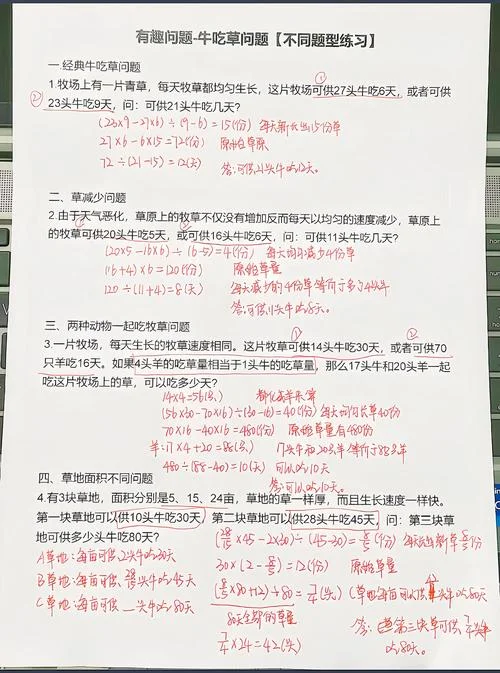 有趣问题-牛吃草问题【不同题型练习】
一.经典牛吃草问题
1.牧场上有一片青草，每天牧草都均匀生长，这片牧场可供27头牛吃6天，或者可供
①
②
23头牛吃9天，问：可供21头牛吃几天？
(23×9-27×6)÷(9-6)=15(份) 每天新长出15份草
27×6-6×15=72(份) 原始草原
72÷(21-15)=12(天) 答:可供21头牛吃12天。
二、草减少问题
2.由于天气恶化，草原上的牧草不仅没有增加反而每天以均匀的速度减少，草原上
的牧草可供20头牛吃5天，或可供16头牛吃6天，问：可供11头牛吃几天？
(20×5-16×6)÷(6-5)=4(份) 每天均匀减少4份草
(16+4)×6=120(份) 原始草量
120÷(11+4)=8(天) 每天减少的4份草等价于多了4头牛
答:可供11头牛吃8天。
三、两种动物一起吃牧草问题
① ②
3.一片牧场，每天生长的牧草速度相同。这片牧草可供14头牛吃30天，或者可供70
只羊吃16天。如果4头羊的吃草量相当于1头牛的吃草量，那么17头牛和20头羊一起
吃这片牧场上的草，可以吃多少天？
14×4=56(头) 都化成羊来算
(56×30-70×16)÷(30-16)=40(份) 每天均匀长草40份
70×16-40×16=480(份) 原始草量有480份
羊:17×4+20=88(头) 17头牛和20头羊等价于88头羊
480÷(88-40)=10(天) 可以吃10天
答:可以吃10天
四、草地面积不同问题
4.有3块草地，面积分别是5、15、24亩，草地的草一样厚，而且生长速度一样快。
第一块草地可以供10头牛吃30天，第二块草地可以供28头牛吃45天，问：第三块草
地可供多少头牛吃80天？
A草地:每亩可供2头牛吃30天
B草地:每亩可供28/15头牛吃45天
C草地:每亩可供__头牛吃80天
(28/15×45-2×30)÷(45-30)=8/5(份) 每天生长新草8/5份
30×(2-8/5)=12(份) 原始草量
(8/5×80+12)÷80=7/4(头) C草地每亩可以供头牛吃80天
80天全部的草量
7/4×24=42(头)
答:第三块草可供7/4头牛
吃80天。